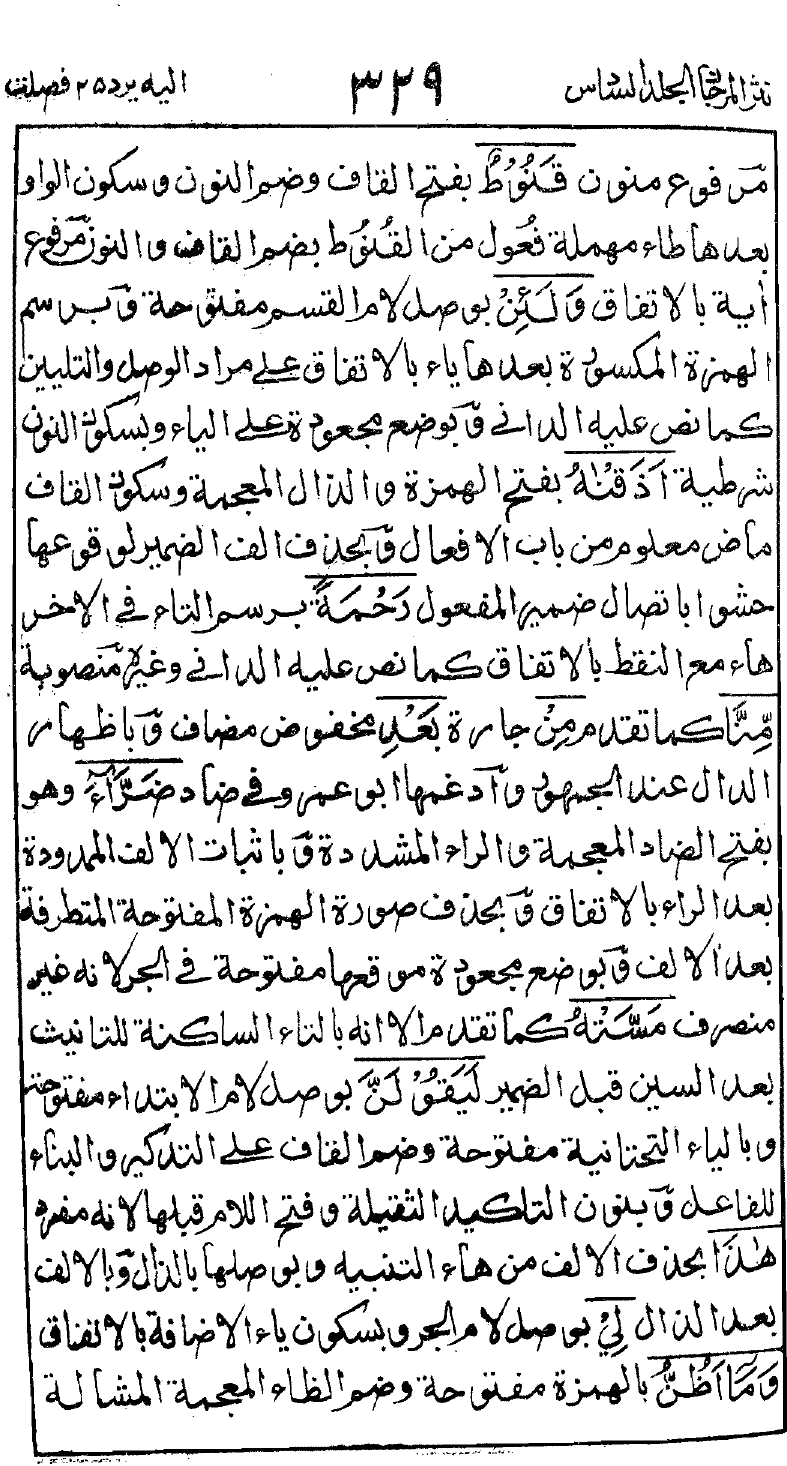 نثر المرجان الجلد السادس ٣٢٩ اليه يرد ٢٥ فصلت
مرفوع منون قَنُوْطٌ بفتح القاف وضم النون وسكون الواو
بعدها طاء مهملة فُعول من القُنُوْط بضم القاف والنون مرفوع
أية بالاتفاق وَلَئِنْ بوصل لام القسم مفتوحة وبرسم
الهمزة المكسورة بعدها ياء بالاتفاق على مراد الوصل والتليين
كما نص عليه الداني وبوضع مجعودة على الياء وبسكون النون
شرطية اَذَقْنٰهُ بفتح الهمزة والذال المعجمة وسكون القاف
ماض معلوم من باب الافعال وبحذف الف الضمير لوقوعها
حشوا باتصال ضمير المفعول رَحْمَةً برسم التاء في الاخر
هاء مع النقط بالاتفاق كما نص عليه الداني وغيره منصوبة
مِّنَّا كما تقدم مِنْ جارة بَعْدِ مخفوض مضاف وباظهار
الدال عند الجمهور وأدغمها ابو عمرو في ضاد ضَرَّآءَ وهو
بفتح الضاد المعجمة والراء المشددة وباثبات الالف الممدودة
بعد الراء بالاتفاق وبحذف صورة الهمزة المفتوحة المتطرفة
بعد الالف وبوضع مجعودة موقعها مفتوحة في الجر لانه غير
منصرف مَسَّتْهُ كما تقدم الا انه بالتاء الساكنة للتانيث
بعد السين قبل الضمير لَيَقُوْلَنَّ بوصل لام الابتداء مفتوحة
وبالياء التحتانية مفتوحة وضم القاف على التذكير والبناء
للفاعل وبنون التاكيد الثقيلة وفتح اللام قبلها لانه مفرد
هٰذَا بحذف الالف من هاء التنبيه وبوصلها بالذال وبالالف
بعد الذال لِيْ بوصل لام الجر وبسكون ياء الاضافة بالاتفاق
وَمَآ اَظُنُّ بالهمزة مفتوحة وضم الظاء المعجمة المشالة